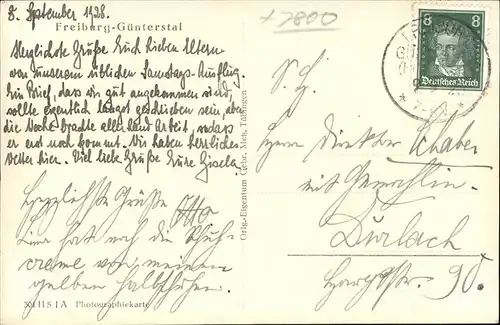 8. September 1928.
Freiburg-Günterstal
Herzlichste Grüße Euch lieben Eltern
von unserem üblichen Samstags-Ausflug.
Ein Brief, dass wir gut angekommen sind,
sollte eigentlich längst geschrieben sein, aber
die Woche brachte allerhand Arbeit, sodass
er erst noch kommt. Wir haben herrliches
Wetter hier. Viel liebe Grüße Eure Gisela.
Herzlichste Grüße
Otto
hat noch die Schuh-
creme von meinen
gelben Halbschuhen.
301 H 5 I A Photographiekarte
Orig.-Eigentum Gebr. Metz, Tübingen
+ 7800
8 8
Deutsches Reich
S. H.
Herrn Direktor Schaber
mit Gemahlin.
Durlach
90.